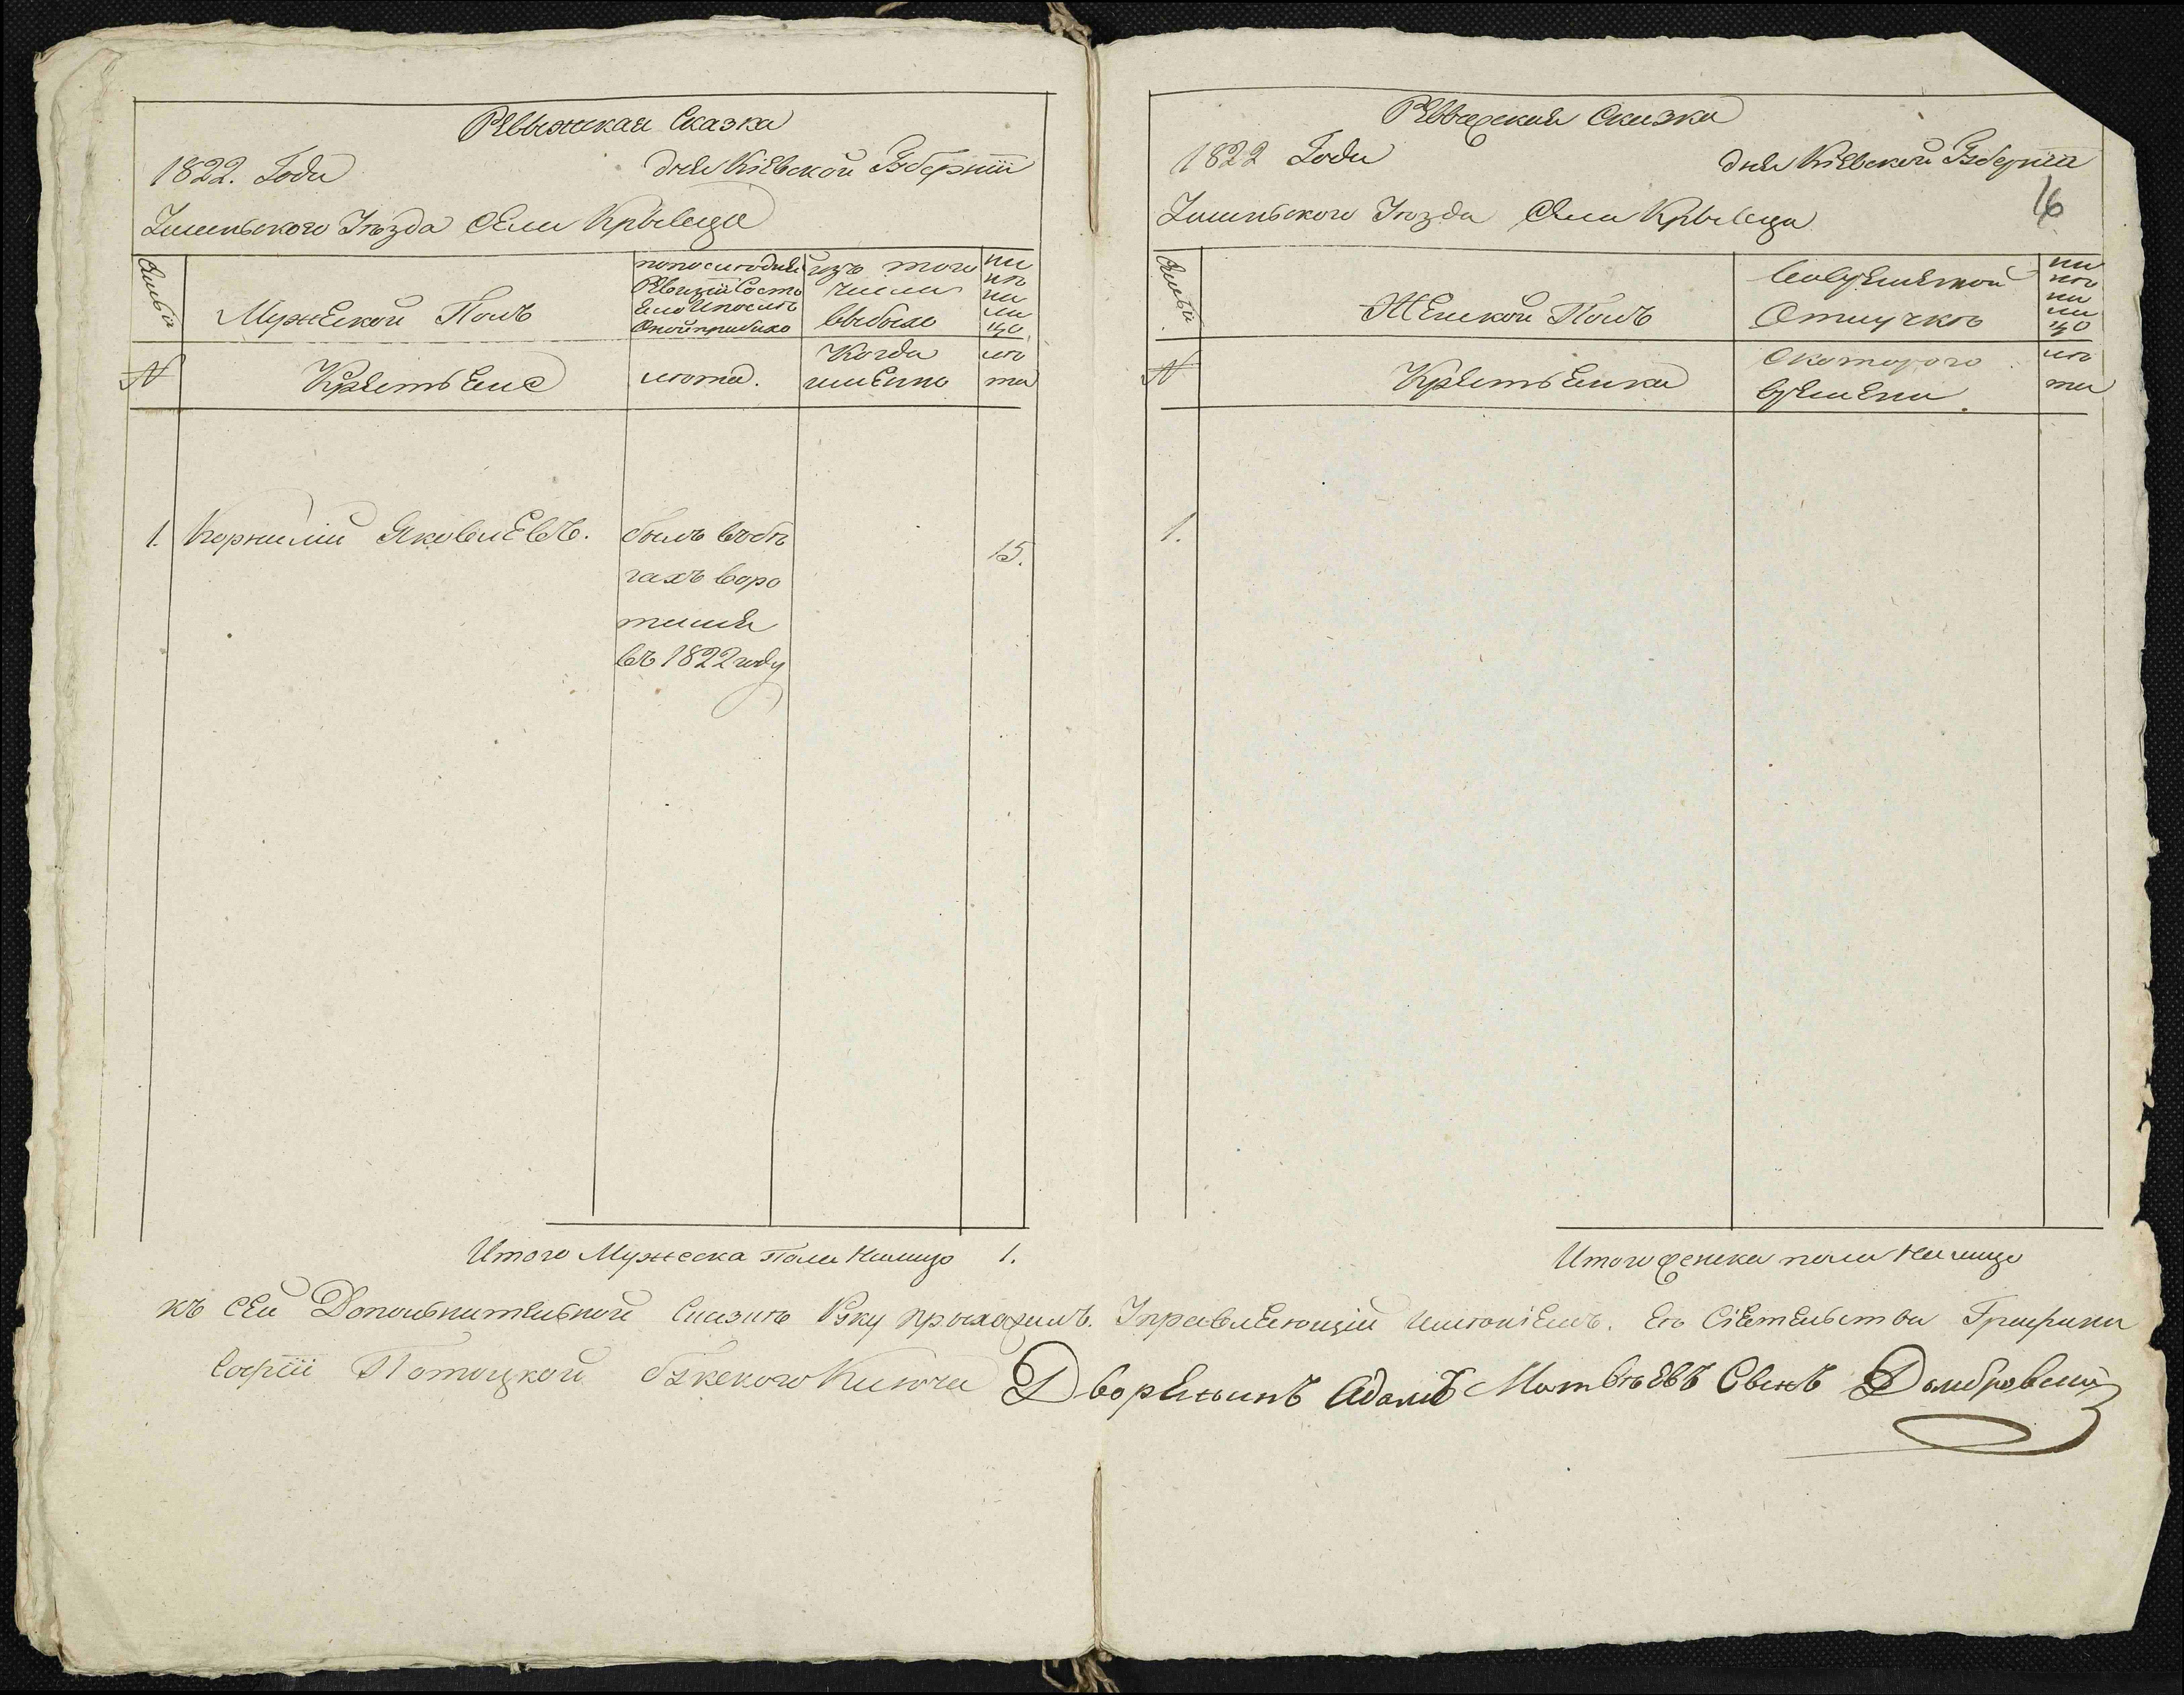 Ревыжская Сказка
1822. Года дня Кіевской Губерніи
Уманьского Уезда Села Крывца
Семьи
Мужеской Полъ
по последней
Ревизіи Состо
яло Ипосле
Оной прибыло
изъ того
числа
выбыло
ны
не
на
ли
цо
№
Крестьяне
лета.
Когда
именно
ле
та
1. Корнилій Яковлевъ. былъ вобе 15.
гахъ воро
тился
въ 1822 году
Итого Мужеска Пола Налицо 1.
Ревизская Сказка
1822 Года дня Кіевской Губерніи
16
Уманьского Уезда Села Крывца
Семьи
Женской Полъ
Вовременной
Отлучке
ны
не
на
ли
цо
№
Крестьянка
Скоторого
времени.
ле
та
1.
Итого женска пола налицо
къ сей Дополнительной Сказке Руку прыложилъ. Управляющій именіемъ. Ея Сіятельства Графини
Софіи Потоцкой Ключа Дворянынъ Адамъ Матвеевъ Сынъ Домбровскій